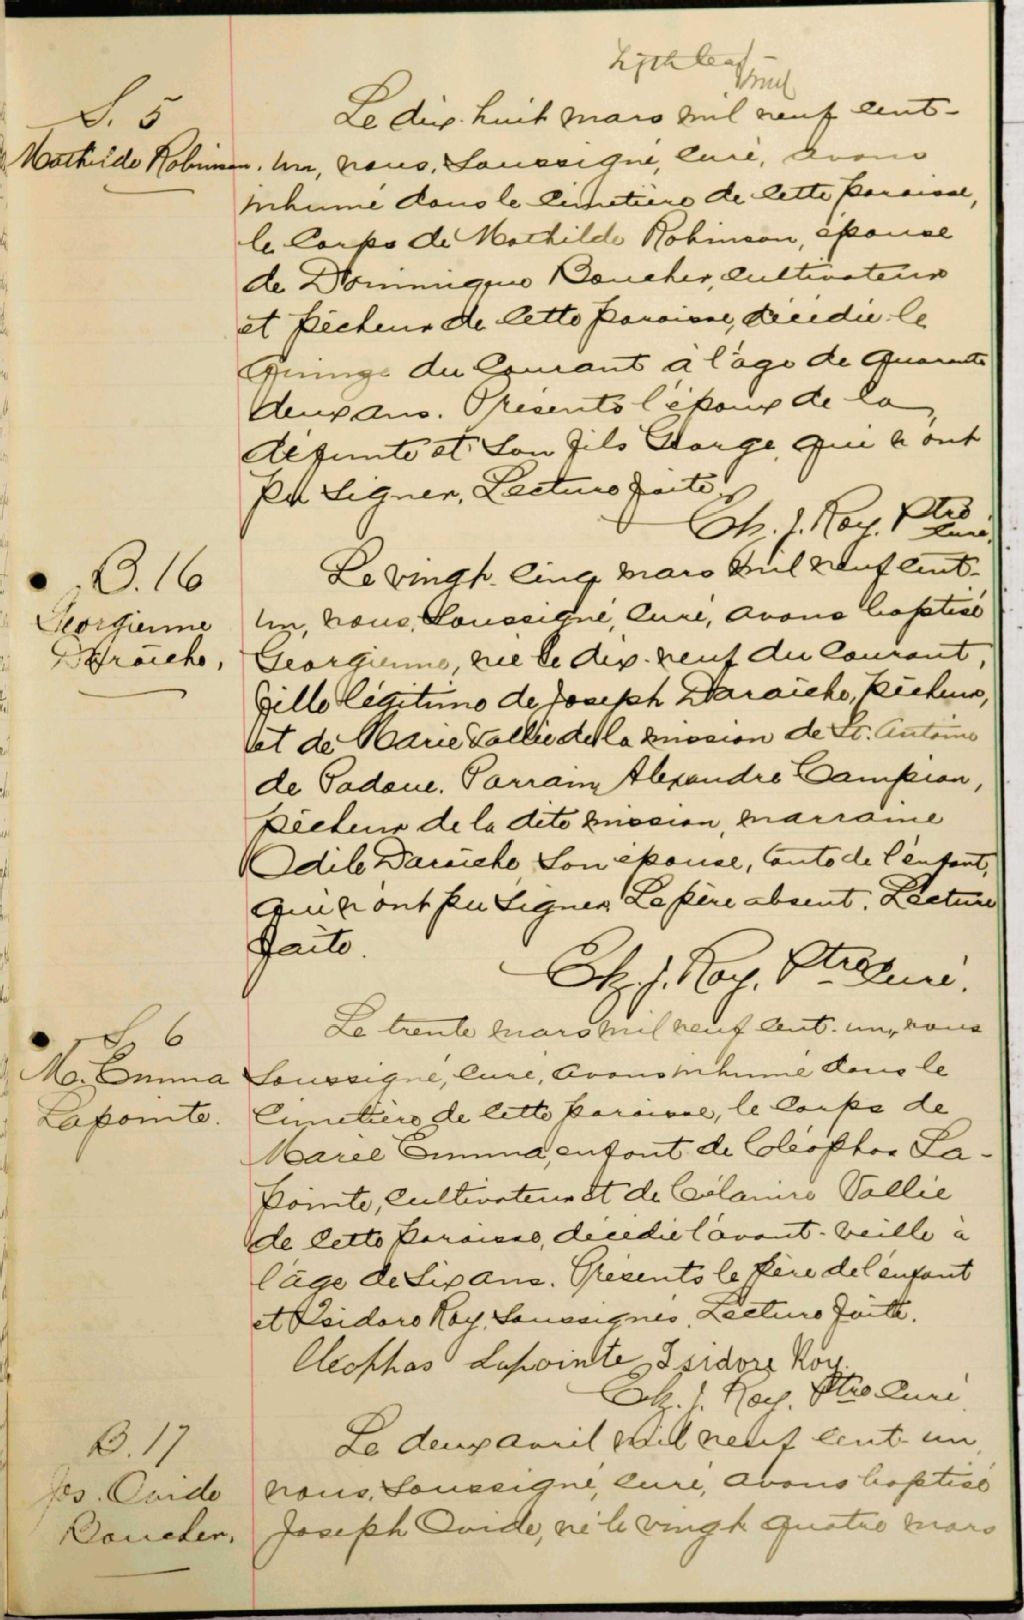 Fifth leaf
S. 5
Mathilde Robinson.
Le dix-huit mars mil neuf cent-
un, nous, soussigné, curé, avons
inhumé dans le cimetière de cette paroisse,
le corps de Mathilde Robinson, épouse
de Dominique Boucher, cultivateur
et pêcheur de cette paroisse, décédée le
quinze du courant à l'âge de quarante
deux ans. Présents l'époux de la
défunte et son fils George, qui n'ont
pu signer. Lecture faite.
Elz. J. Roy. Ptre
curé.
B. 16
Georgienne
Daraîche,
Le vingt-cinq mars mil neuf cent-
un, nous, soussigné, curé, avons baptisé
Georgienne, née le dix-neuf du courant,
fille légitime de Joseph Daraîche, pêcheur,
et de Marie Vallée de la mission de St. Antoine
de Padoue. Parrain Alexandre Campion,
pêcheur de la dite mission, marraine
Odile Daraîche son épouse, tante de l'enfant,
qui n'ont pu signer. Le père absent. Lecture
faite.
Elz. J. Roy. Ptre curé.
S. 6
M. Emma
Lapointe.
Le trente mars mil neuf cent-un, nous
soussigné, curé, avons inhumé dans le
cimetière de cette paroisse, le corps de
Marie Emma, enfant de Cléophas La-
pointe, cultivateur et de Célanire Vallée
de cette paroisse, décédée l'avant-veille à
l'âge de six ans. Présents le père de l'enfant
et Isidore Roy, soussignés. Lecture faite.
Cléophas Lapointe Isidore Roy.
Elz. J. Roy. Ptre curé.
B. 17
Jos. Ovide
Boucher,
Le deux avril mil neuf cent-un,
nous, soussigné, curé, avons baptisé
Joseph Ovide, né le vingt quatre mars